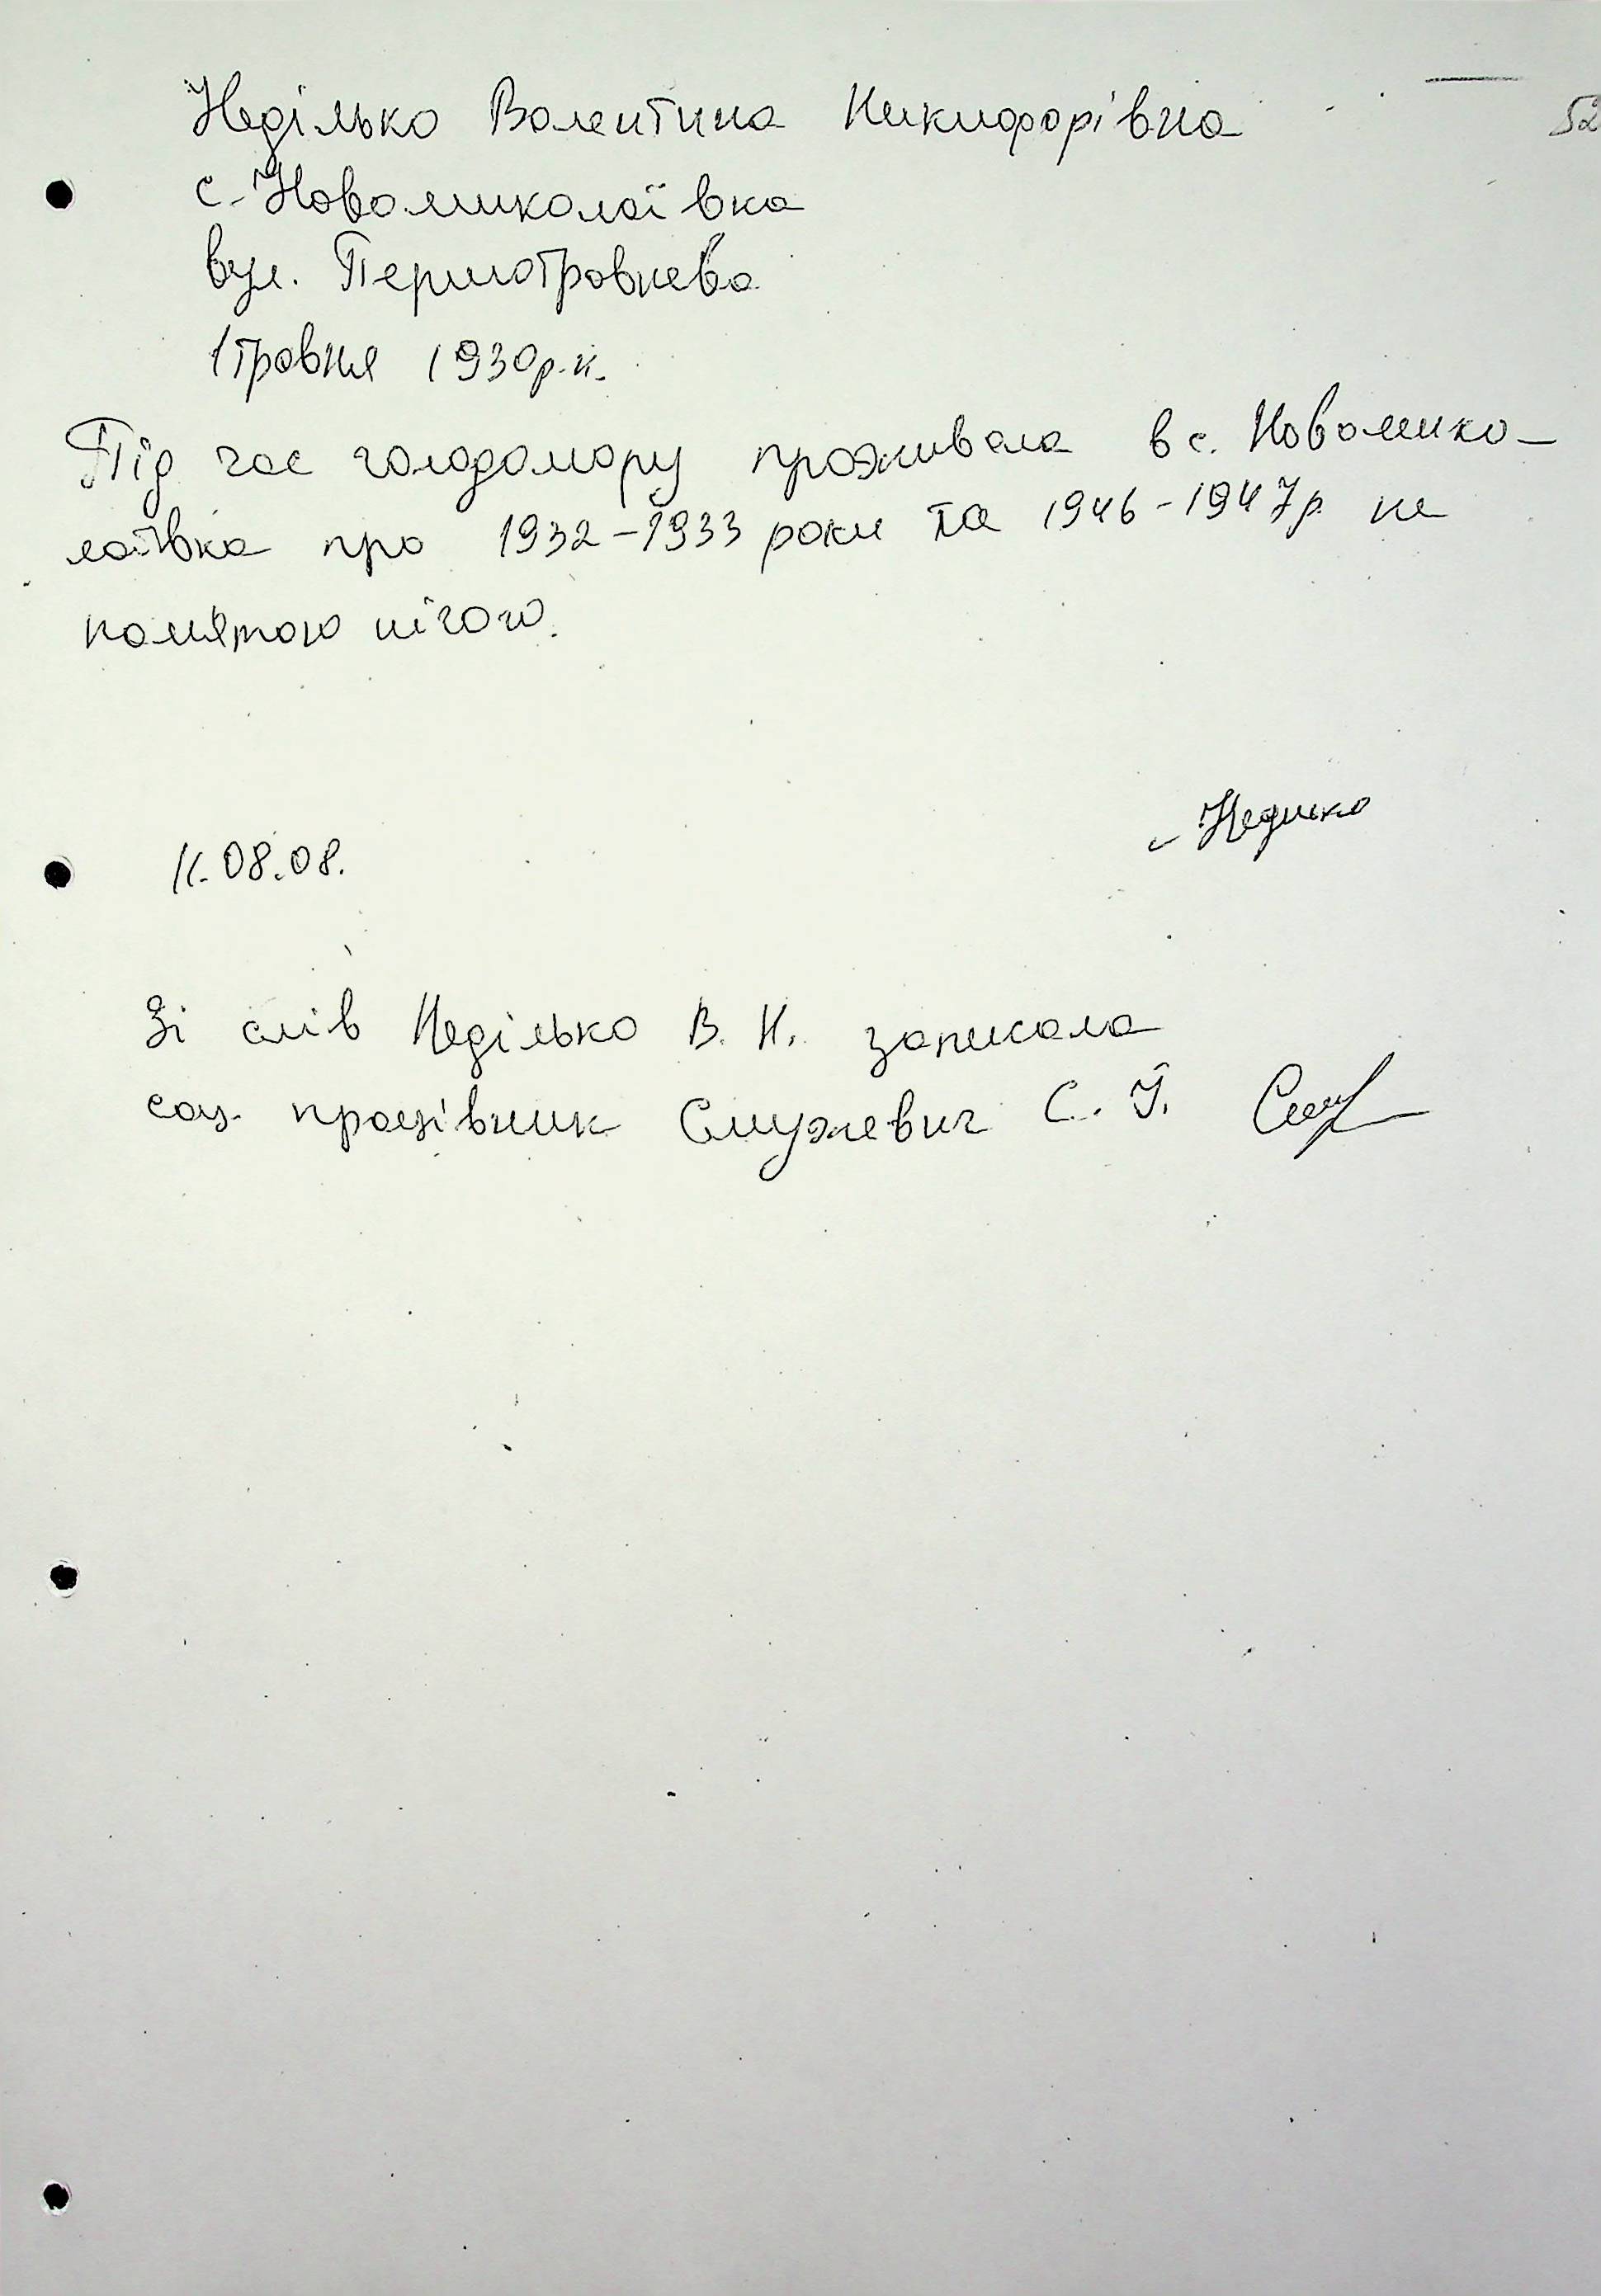 52
Неділько Валентина Никифорівна
с. Новомиколаївка
вул. Першотравнева
1 травня 1930 р.н.
Під час голодомору проживала в с. Новомико-
лаївка про 1932-1933 роки та 1946-1947 р. не
памятаю нічого.
Недилко
11.08.08.
Зі слів Неділько В. Н. записала
соц. працівник Служевич С. І.